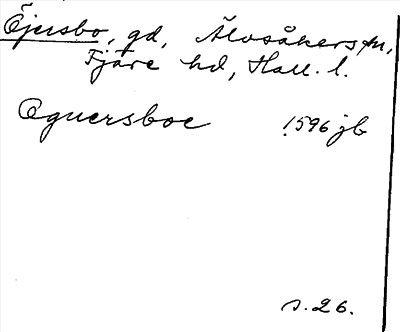 Öjersbo, gd, Älvsåkers sn,
Fjäre hd, Hall. l.
Øguersboe 1596 jb
s. 26.